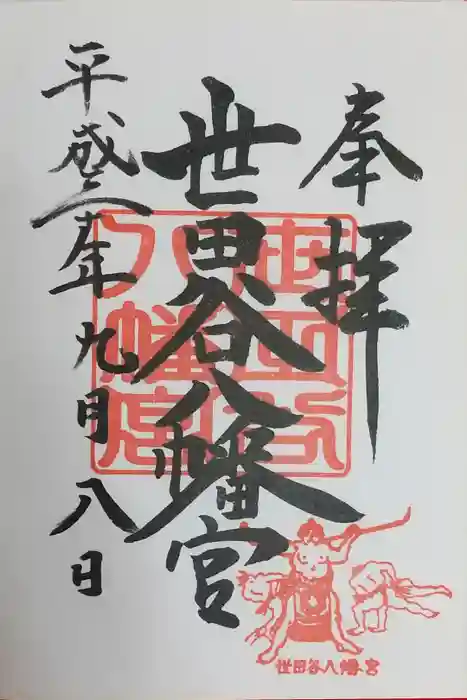 奉拝
世田谷八幡宮
平成年九月八日
世田谷
八幡宮
世田谷八幡宮